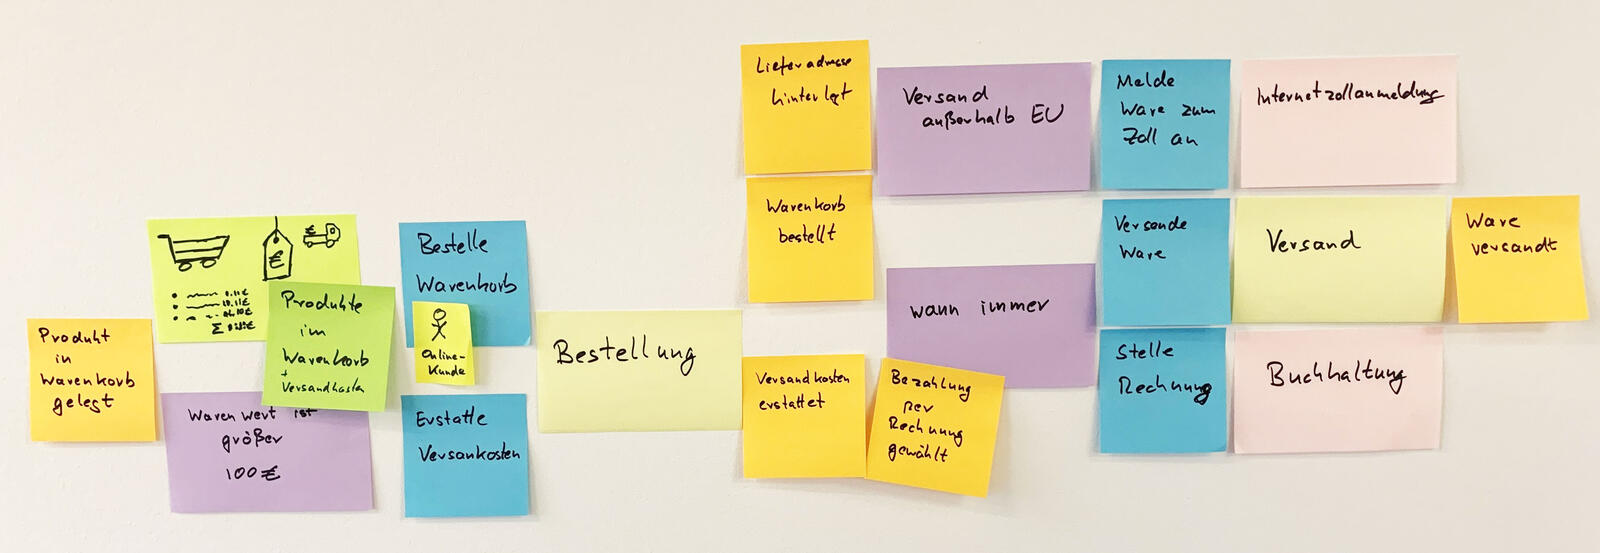 Produkt
in
Warenkorb
gelegt
€
€
Σ
Produkte
im
Warenkorb
+
Versandkosten
Warenwert ist
größer
100 €
Bestelle
Warenkorb
Online-
Kunde
Erstatte
Versankosten
Bestellung
Lieferadresse
hinterlegt
Warenkorb
bestellt
Versandkosten
erstattet
Bezahlung
per
Rechnung
gewählt
Versand
außerhalb EU
wann immer
Melde
Ware zum
Zoll an
Versende
Ware
Stelle
Rechnung
Internetzollanmeldung
Versand
Buchhaltung
Ware
versandt